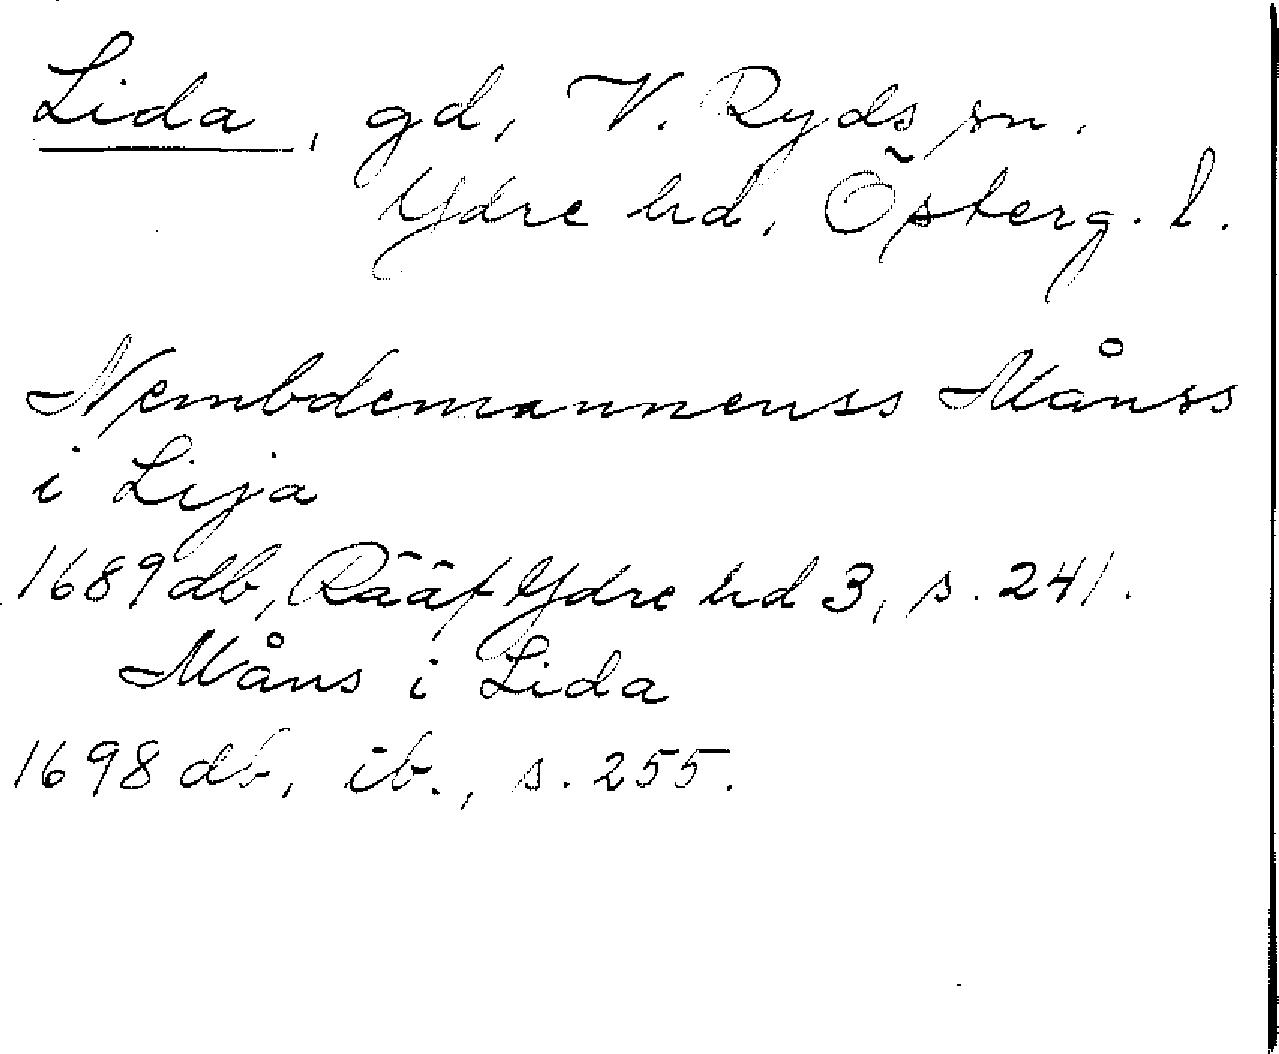 Lida, gd, V. Ryds sn.
Ydre hd, Österg. l.
Nembdemannenss Månss
i Lija
1689 db, Rääf Ydre hd 3, s. 241.
Måns i Lida
1698 db, ib., s. 255.